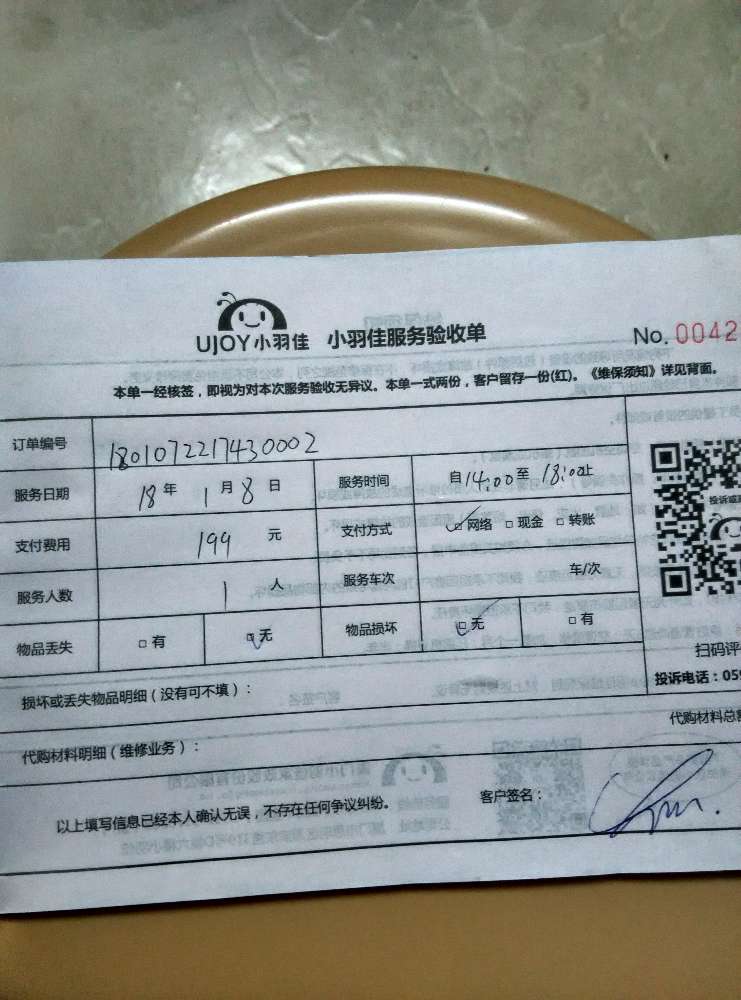 UJOY小羽佳 小羽佳服务验收单 No. 0042
本单一经核签，即视为对本次服务验收无异议。本单一式两份，客户留存一份(红)。《维保须知》详见背面。
订单编号 1801072217430002
服务日期 18年 1月8日 服务时间 自14:00至18:00止
支付费用 199 元 支付方式 □网络 □现金 □转账
服务人数 1 人 服务车次 车/次
物品丢失 □有 □无 物品损坏 □无 □有
扫码评
损坏或丢失物品明细（没有可不填）： 投诉电话：059
代购材料明细（维修业务）： 代购材料总
以上填写信息已经本人确认无误，不存在任何争议纠纷。 客户签名：